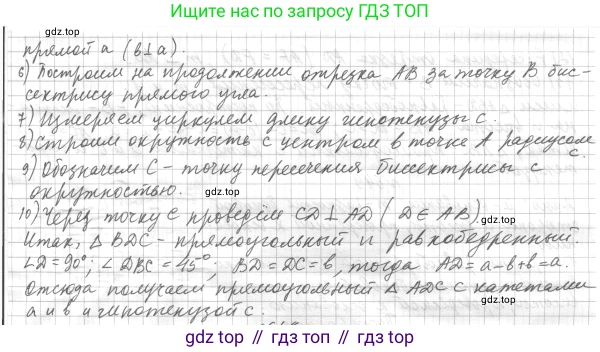 Ищите нас по запросу ГДЗ ТОП
gdz.top
прямой a (в⊥a).
6) Построим на продолжении отрезка AB за точку B бис-
сектрису прямого угла.
7) Измеряем циркулем длину гипотенузы c.
8) Строим окружность с центром в точке A радиусом
c.
9) Обозначим C - точку пересечения биссектрисы с
окружностью.
gdz.top
10) Через точку C проведём CD⊥AD (D∈AB)
gdz.top
Итак, △BDC - прямоугольный и равнобедренный.
∠D=90°; ∠DBC=45°; BD=DC=в, тогда AD=a-в+в=a.
Отсюда получаем прямоугольный △ADC с катетами
a и в и гипотенузой c.
gdz.top
gdz.top // gdz.top // gdz.top // gdz.top